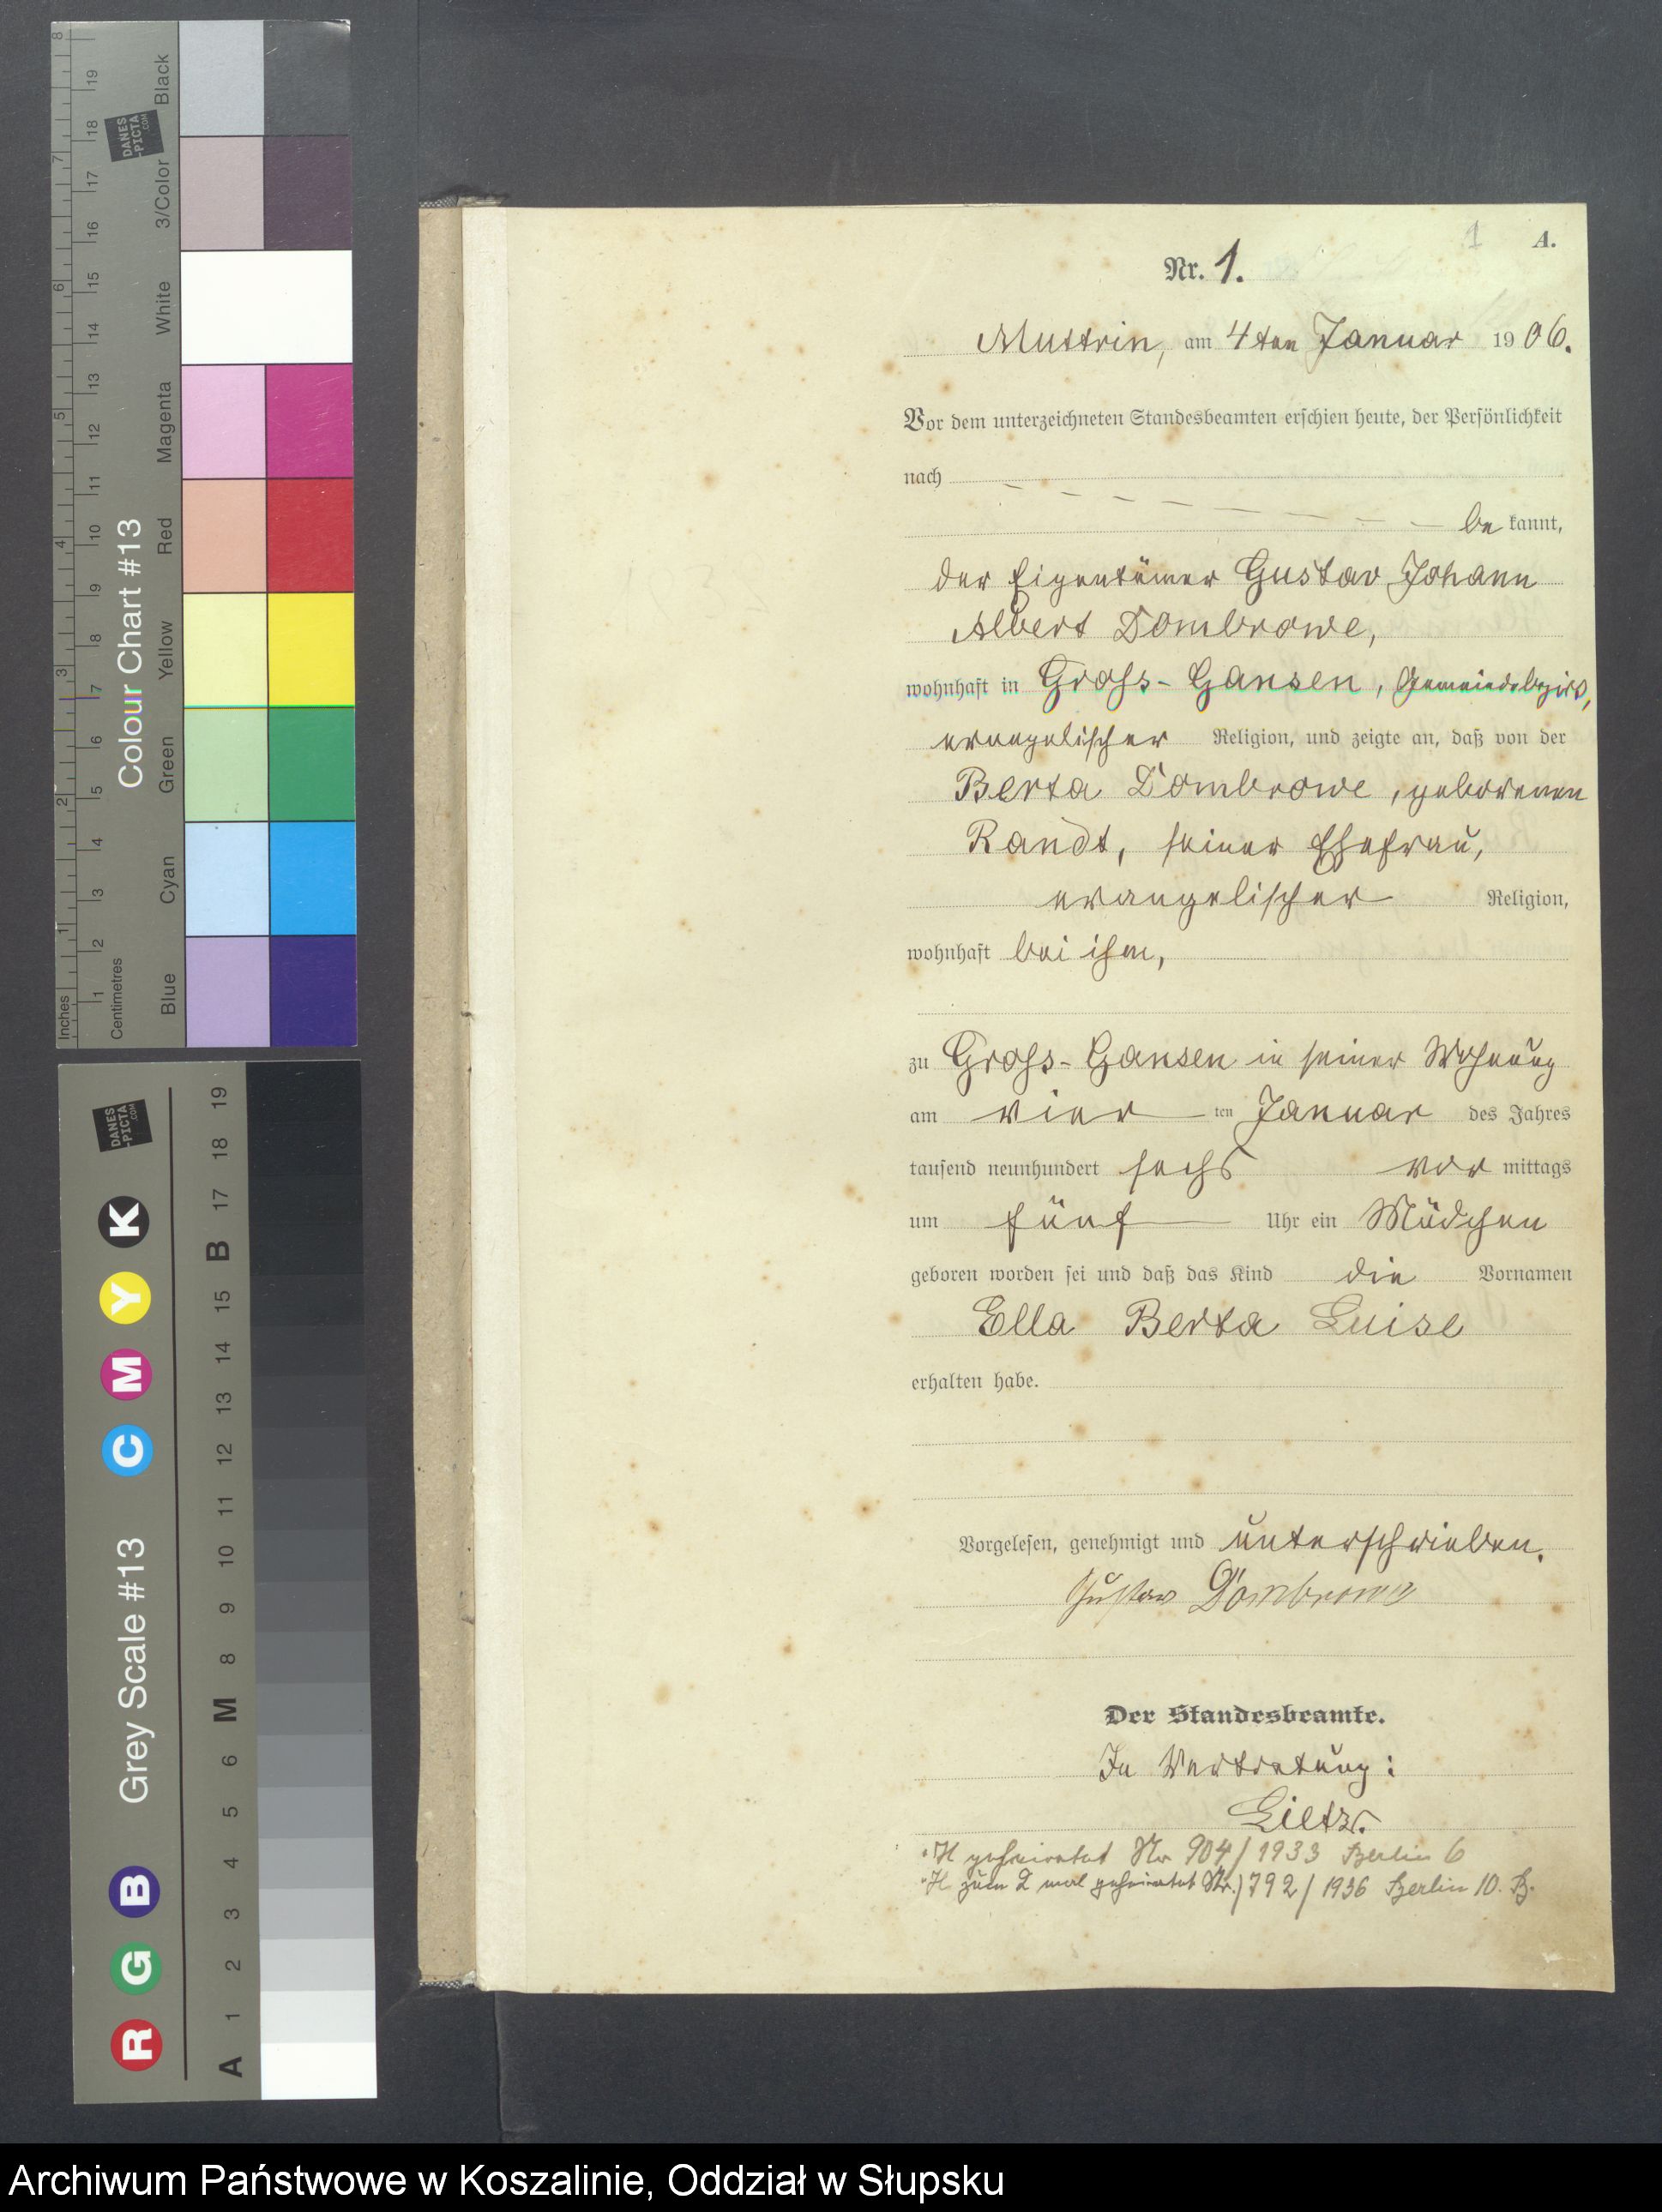 Inches 1 2 3 4 5 6 7 8
Centimetres 1 2 3 4 5 6 7 8 9 10 11 12 13 14 15 16 17 18 19
Colour Chart #13
Blue Cyan Green Yellow Red Magenta White 3/Color Black
DANES
-PICTA
.COM
Grey Scale #13
R G B C M Y K
A 1 2 3 4 5 6 M 8 9 10 11 12 13 14 15 B 17 18 19
DANES
-PICTA
.COM
1 A.
Nr. 1.
Muttrin, am 4ten Januar 1906.
Vor dem unterzeichneten Standesbeamten erschien heute, der Persönlichkeit
nach
be kannt,
der Eigentümer Gustav Johann
Albert Dombrowe,
wohnhaft in Gross-Gansen, Gemeindebezirk,
evangelischer Religion, und zeigte an, daß von der
Berta Dombrowe, geborenen
Randt, seiner Ehefrau,
evangelischer Religion,
wohnhaft bei ihm,
zu Gross-Gansen in seiner Wohnung
am vier ten Januar des Jahres
tausend neunhundert sechs vor mittags
um fünf Uhr ein Mädchen
geboren worden sei und daß das Kind die Vornamen
Ella Berta Luise
erhalten habe.
Vorgelesen, genehmigt und unterschrieben.
Gustav Dombrowe
Der Standesbeamte.
In Vertretung:
Lietz.
geheiratet Nr 904/1933 Berlin 6
zum 2 mal geheiratet Nr. 792/1936 Berlin 10. B.
Archiwum Państwowe w Koszalinie, Oddział w Słupsku